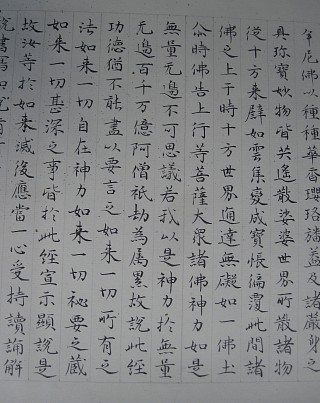 牟尼佛以種種華香瓔珞幡蓋及諸嚴身之
具珎寶妙物皆共遙散娑婆世界所散諸物
從十方来譬如雲集變成寶帳徧覆此間諸
佛之上于時十方世界通達無礙如一佛土
尒時佛告上行等菩薩大眾諸佛神力如是
無量无邊不可思議若我以是神力於無量
无邊百千万億阿僧祇劫為属累故說此經
功德猶不能盡以要言之如来一切所有之
法如来一切自在神力如来一切祕要之藏
如来一切甚深之事皆於此經宣示顯說是
故汝等於如来滅後應當一心受持讀誦解
說書寫如說